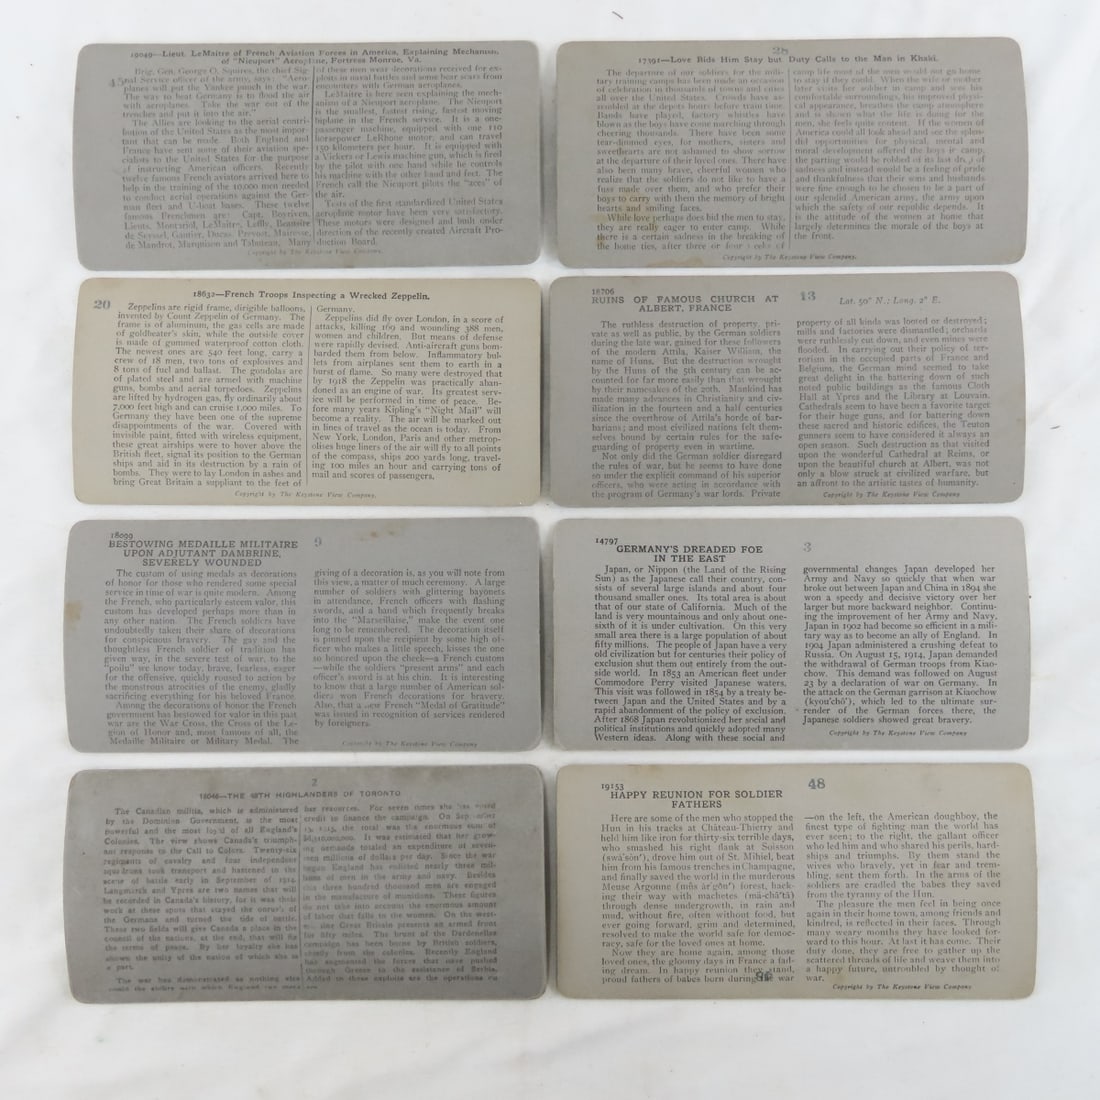 19049—Lieut. LeMaitre of French Aviation Forces in America, Explaining Mechanism,
of "Nieuport" Aeroplane, Fortress Monroe, Va.
Brig. Gen. George O. Squires, the chief Sig-
nal Service officer of the army, says: "Aero-
planes will put the Yankee punch in the war.
The way to beat Germany is to flood the air
with aeroplanes. Take the war out of the
trenches and put it into the air."
The Allies are looking to the aerial contri-
bution of the United States as the most impor-
tant that can be made. Both England and
France have sent some of their aviation spe-
cialists to the United States for the purpose
of instructing American officers. Recently
twelve famous French aviators arrived here to
help in the training of the 10,000 men needed
to conduct aerial operations against the Ger-
man fleet and U-boat bases. These twelve
famous Frenchmen are: Capt. Boyriven,
Lieuts. Montariol, LeMaitre, Lafly, Beaussire
de Seyssel, Gautier, Ducas, Prevost, Mairesse,
de Mandrot, Marquisan and Tabuteau. Many
of these men wear decorations received for ex-
ploits in naval battles and some bear scars from
encounters with German aeroplanes.
LeMaitre is here seen explaining the mech-
anism of a Nieuport aeroplane. The Nieuport
is the smallest, fastest rising, fastest moving
biplane in the French service. It is a one-
passenger machine, equipped with one 110
horsepower LeRhone motor, and can travel
150 kilometers per hour. It is equipped with
a Vickers or Lewis machine gun, which is fired
by the pilot with one hand while he controls
his machine with the other hand and feet. The
French call the Nieuport pilots the "aces" of
the air.
Tests of the first standardized United States
aeroplane motor have been very satisfactory.
These motors were designed and built under
direction of the recently created Aircraft Pro-
duction Board.
Copyright by The Keystone View Company.
28
17391—Love Bids Him Stay but Duty Calls to the Man in Khaki.
The departure of our soldiers for the mili-
tary training camps has been made an occasion
of celebration in thousands of towns and cities
all over the United States. Crowds have as-
sembled at the depots hours before train time.
Bands have played, factory whistles have
blown as the boys have come marching through
cheering thousands. There have been some
tear-dimmed eyes, for mothers, sisters and
sweethearts are not ashamed to show sorrow
at the departure of their loved ones. There have
also been many brave, cheerful women who
realize that the soldiers do not like to have a
fuss made over them, and who prefer their
boys to carry with them the memory of bright
hearts and smiling faces.
While love perhaps does bid the men to stay,
they are really eager to enter camp. While
there is a certain sadness in the breaking of
the home ties, after three or four weeks of
camp life most of the men would not go home
to stay if they could. When the wife or mother
later visits her soldier in camp and sees his
comfortable surroundings, his improved physi-
cal appearance, breathes the camp atmosphere
and is shown what the life is doing for the
men, she feels quite content. If the women of
America could all look ahead and see the splen-
did opportunities for physical, mental and
moral development offered the boys in camp,
the parting would be robbed of its last drop of
sadness and instead would be a feeling of pride
and thankfulness that their sons and husbands
were fine enough to be chosen to be a part of
our splendid American army, the army upon
which the safety of our republic depends. It
is the attitude of the women at home that
largely determines the morale of the boys at
the front.
Copyright by The Keystone View Company.
20
18632—French Troops Inspecting a Wrecked Zeppelin.
Zeppelins are rigid frame, dirigible balloons,
invented by Count Zeppelin of Germany. The
frame is of aluminum, the gas cells are made
of goldbeater's skin, while the outside cover
is made of gummed waterproof cotton cloth.
The newest ones are 540 feet long, carry a
crew of 18 men, two tons of explosives and
8 tons of fuel and ballast. The gondolas are
of plated steel and are armed with machine
guns, bombs and aerial torpedoes. Zeppelins
are lifted by hydrogen gas, fly ordinarily about
7,000 feet high and can cruise 1,000 miles. To
Germany they have been one of the supreme
disappointments of the war. Covered with
invisible paint, fitted with wireless equipment,
these great airships were to hover above the
British fleet, signal its position to the German
ships and aid in its destruction by a rain of
bombs. They were to lay London in ashes and
bring Great Britain a suppliant to the feet of
Germany.
Zeppelins did fly over London, in a score of
attacks, killing 169 and wounding 388 men,
women and children. But means of defense
were rapidly devised. Anti-aircraft guns bom-
barded them from below. Inflammatory bul-
lets from airplanes sent them to earth in a
burst of flame. So many were destroyed that
by 1918 the Zeppelin was practically aban-
doned as an engine of war. Its greatest serv-
ice will be performed in time of peace. Be-
fore many years Kipling's "Night Mail" will
become a reality. The air will be marked out
in lines of travel as the ocean is today. From
New York, London, Paris and other metrop-
olises huge liners of the air will fly to all points
of the compass, ships 200 yards long, travel-
ing 100 miles an hour and carrying tons of
mail and scores of passengers.
Copyright by The Keystone View Company.
18706
RUINS OF FAMOUS CHURCH AT
ALBERT, FRANCE
13
Lat. 50° N.; Long. 2° E.
The ruthless destruction of property, pri-
vate as well as public, by the German soldiers
during the late war, gained for these followers
of the modern Attila, Kaiser William, the
name of Huns. But the destruction wrought
by the Huns of the 5th century can be ac-
counted for far more easily than that wrought
by their namesakes of the 20th. Mankind has
made many advances in Christianity and civ-
ilization in the fourteen and a half centuries
since the overthrow of Attila's horde of bar-
barians; and most civilized nations felt them-
selves bound by certain rules for the safe-
guarding of property even in wartime.
Not only did the German soldier disregard
the rules of war, but he seems to have done
so under the explicit command of his superior
officers, who were acting in accordance with
the program of Germany's war lords. Private
property of all kinds was looted or destroyed;
mills and factories were dismantled; orchards
were ruthlessly cut down, and even mines were
flooded. In carrying out their policy of ter-
rorism in the occupied parts of France and
Belgium, the German mind seemed to take
great delight in the battering down of such
noted public buildings as the famous Cloth
Hall at Ypres and the Library at Louvain.
Cathedrals seem to have been a favorite target
for their huge guns, and for battering down
these sacred and historic edifices, the Teuton
gunners seem to have considered it always an
open season. Such destruction as that visited
upon the wonderful Cathedral at Reims, or
upon the beautiful church at Albert, was not
only a blow struck at civilized warfare, but
an affront to the artistic tastes of humanity.
Copyright by The Keystone View Company
18099
BESTOWING MEDAILLE MILITAIRE
UPON ADJUTANT DAMBRINE,
SEVERELY WOUNDED
9
The custom of using medals as decorations
of honor for those who rendered some special
service in time of war is quite modern. Among
the French, who particularly esteem valor, this
custom has developed perhaps more than in
any other nation. The French soldiers have
undoubtedly taken their share of decorations
for conspicuous bravery. The gay and the
thoughtless French soldier of tradition has
given way, in the severe test of war, to the
"poilu" we know today, brave, fearless, eager
for the offensive, quickly roused to action by
the monstrous atrocities of the enemy, gladly
sacrificing everything for his beloved France.
Among the decorations of honor the French
government has bestowed for valor in this past
war are the War Cross, the Cross of the Le-
gion of Honor and, most famous of all, the
Medaille Militaire or Military Medal. The
giving of a decoration is, as you will note from
this view, a matter of much ceremony. A large
number of soldiers with glittering bayonets
in attendance, French officers with flashing
swords, and a band which frequently breaks
into the "Marseillaise," make the event one
long to be remembered. The decoration itself
is pinned upon the recipient by some high of-
ficer who makes a little speech, kisses the one
so honored upon the cheek—a French custom
—while the soldiers "present arms" and each
officer's sword is at his chin. It is interesting
to know that a large number of American sol-
diers won French decorations for bravery.
Also, that a new French "Medal of Gratitude"
was issued in recognition of services rendered
by foreigners.
Copyright by The Keystone View Company
14797
GERMANY'S DREADED FOE
IN THE EAST
3
Japan, or Nippon (the Land of the Rising
Sun) as the Japanese call their country, con-
sists of several large islands and about four
thousand smaller ones. Its total area is about
that of our state of California. Much of the
land is very mountainous and only about one-
sixth of it is under cultivation. On this very
small area there is a large population of about
fifty millions. The people of Japan have a very
old civilization but for centuries their policy of
exclusion shut them out entirely from the out-
side world. In 1853 an American fleet under
Commodore Perry visited Japanese waters.
This visit was followed in 1854 by a treaty be-
tween Japan and the United States and by a
rapid abandonment of the policy of exclusion.
After 1868 Japan revolutionized her social and
political institutions and quickly adopted many
Western ideas. Along with these social and
governmental changes Japan developed her
Army and Navy so quickly that when war
broke out between Japan and China in 1894 she
won a speedy and decisive victory over her
larger but more backward neighbor. Continu-
ing the improvement of her Army and Navy,
Japan in 1902 had become so efficient in a mili-
tary way as to become an ally of England. In
1904 Japan administered a crushing defeat to
Russia. On August 15, 1914, Japan demanded
the withdrawal of German troops from Kiao-
chow. This demand was followed on August
23 by a declaration of war on Germany. In
the attack on the German garrison at Kiaochow
(kyou'chō'), which led to the ultimate sur-
render of the German forces there, the
Japanese soldiers showed great bravery.
Copyright by The Keystone View Company
2
18046—THE 48TH HIGHLANDERS OF TORONTO
The Canadian militia, which is administered
by the Dominion Government, is the most
powerful and the most loyal of all England's
Colonies. The view shows Canada's triumph-
ant response to the Call to Colors. Twenty-six
regiments of cavalry and four independent
squadrons took transport and hastened to the
scene of battle early in September of 1914.
Langmarck and Ypres are two names that will
be recorded in Canada's history, for it was their
work at these spots that stayed the onrush of
the Germans and turned the tide of battle.
These two fields will give Canada a place in the
council of the nations, at the end, that will fix
the terms of peace. By her loyalty she has
shown the unity of the nation of which she is
a part.
The war has demonstrated as nothing else
could the ability with which England can meet
her resources. For seven times she has voted
credit to finance the campaign. On September
15, 1915, the total was the enormous sum of
It was estimated that her grow-
ing demands totaled an expenditure of seven-
teen millions of dollars per day. Since the war
began England has enlisted nearly three mil-
lions of men in the army and navy. Besides
this three hundred thousand men are engaged
in the manufacture of munitions. These figures
do not take into account the enormous amount of
labor that falls to the women. On the west-
ern line Great Britain presents an armed front
for fifty miles. The brunt of the Dardanelles
campaign has been borne by British soldiers,
chiefly from the colonies. Recently England
has augmented her forces that have pushed
through Greece to the assistance of Serbia.
Added to these exploits are the operations on
19153
HAPPY REUNION FOR SOLDIER
FATHERS
48
Here are some of the men who stopped the
Hun in his tracks at Château-Thierry and
held him like iron for thirty-six terrible days,
who smashed his right flank at Soisson
(swä'sôn'), drove him out of St. Mihiel, beat
him from his famous trenches in Champagne,
and finally saved the world in the murderous
Meuse Argonne (mûs är'gôn') forest, hack-
ing their way with machetes (mä-chā'tā)
through dense undergrowth, in rain and
mud, without fire, often without food, but
ever going forward, grim and determined,
resolved to make the world safe for democ-
racy, safe for the loved ones at home.
Now they are home again, among those
loved ones, the gloomy days in France a fad-
ing dream. In happy reunion they stand,
proud fathers of babes born during the war
—on the left, the American doughboy, the
finest type of fighting man the world has
ever seen; to the right, the gallant officer
who led him and who shared his perils, hard-
ships and triumphs. By them stand the
wives who bravely, yet in fear and trem-
bling, sent them forth. In the arms of the
soldiers are cradled the babes they saved
from the tyranny of the Hun.
The pleasure the men feel in being once
again in their home town, among friends and
kindred, is reflected in their faces. Through
many weary months they have looked for-
ward to this hour. At last it has come. Their
duty done, they are free to gather up the
scattered threads of life and weave them into
a happy future, untroubled by thought of
war.
Copyright by The Keystone View Company